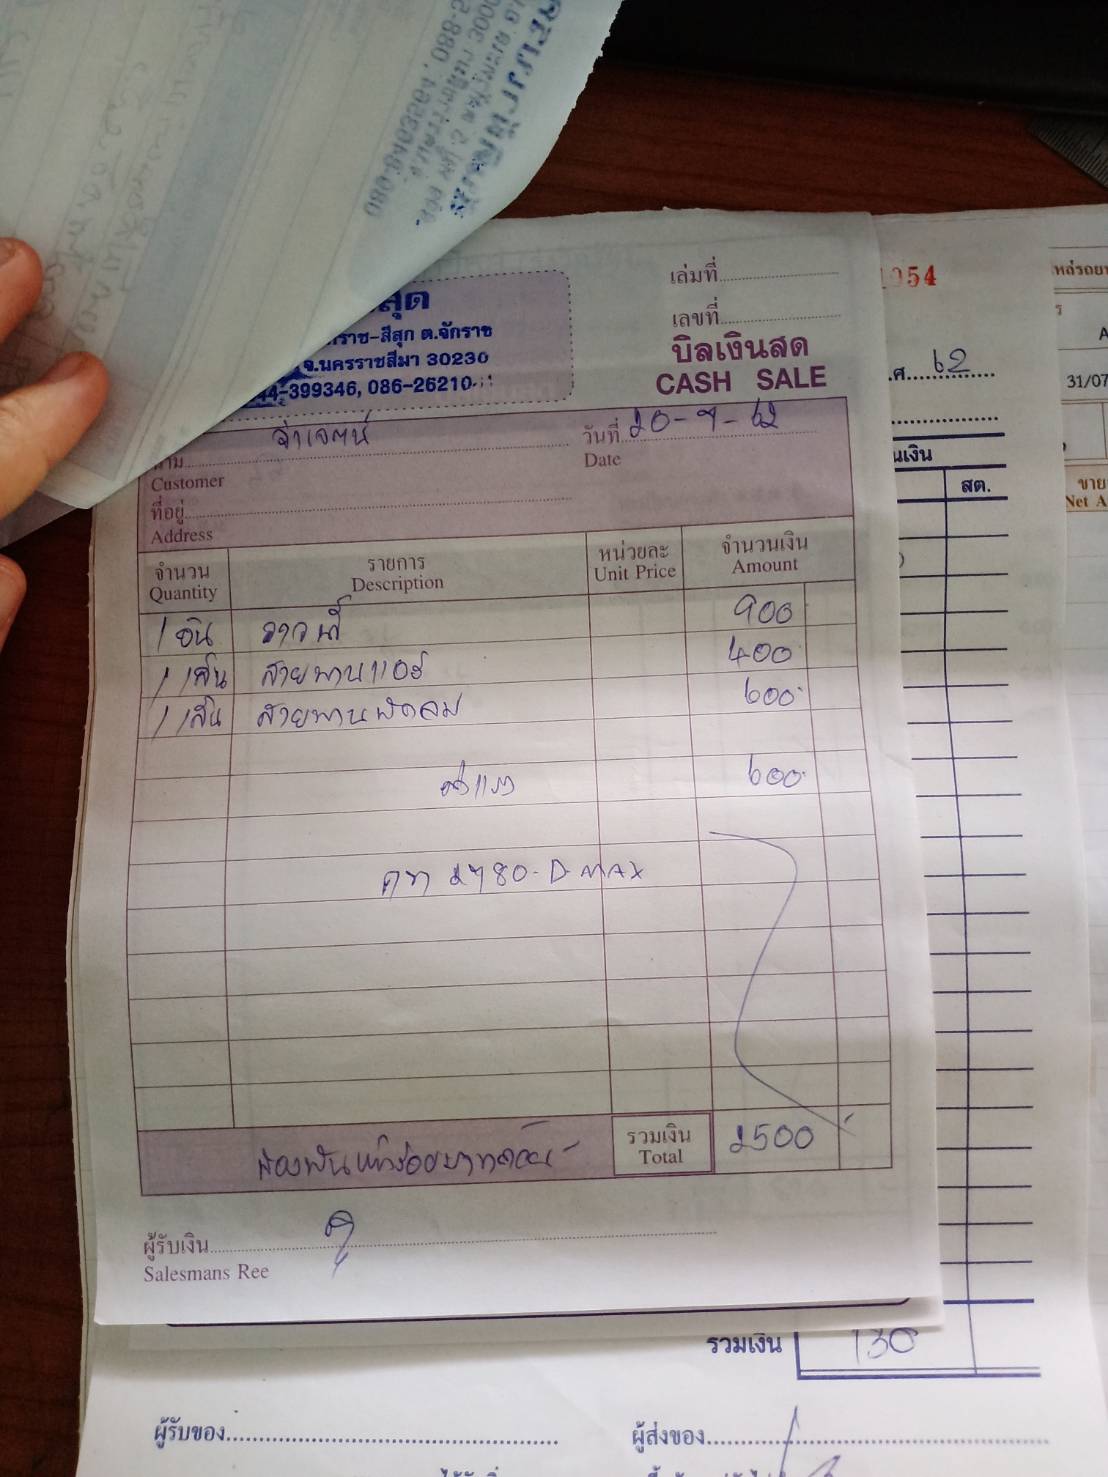 088-5
3000
080-8403694
เล่มที่
1054
เลขที่
บิลเงินสด
CASH SALE
สุก
ราช-สีสุก ต.จักราช
จ.นครราชสีมา 30230
44-399346, 086-26210
จ่าเจตน์
Customer
วันที่ 20-7-62
Date
ที่อยู่
Address
จำนวน
Quantity
รายการ
Description
หน่วยละ
Unit Price
จำนวนเงิน
Amount
1 อัน
900
1 เส้น สายพานแอร์ 400
1 เส้น สายพานพัดลม 600
ค่าแรง 600
2780-D-MAX
สองพันห้าร้อยบาทถ้วน
รวมเงิน
Total
2500
ผู้รับเงิน
Salesmans Ree
.ศ. 62
นเงิน
สต.
31/07
ขาย
Net A
รวมเงิน 130
ผู้รับของ
ผู้ส่งของ